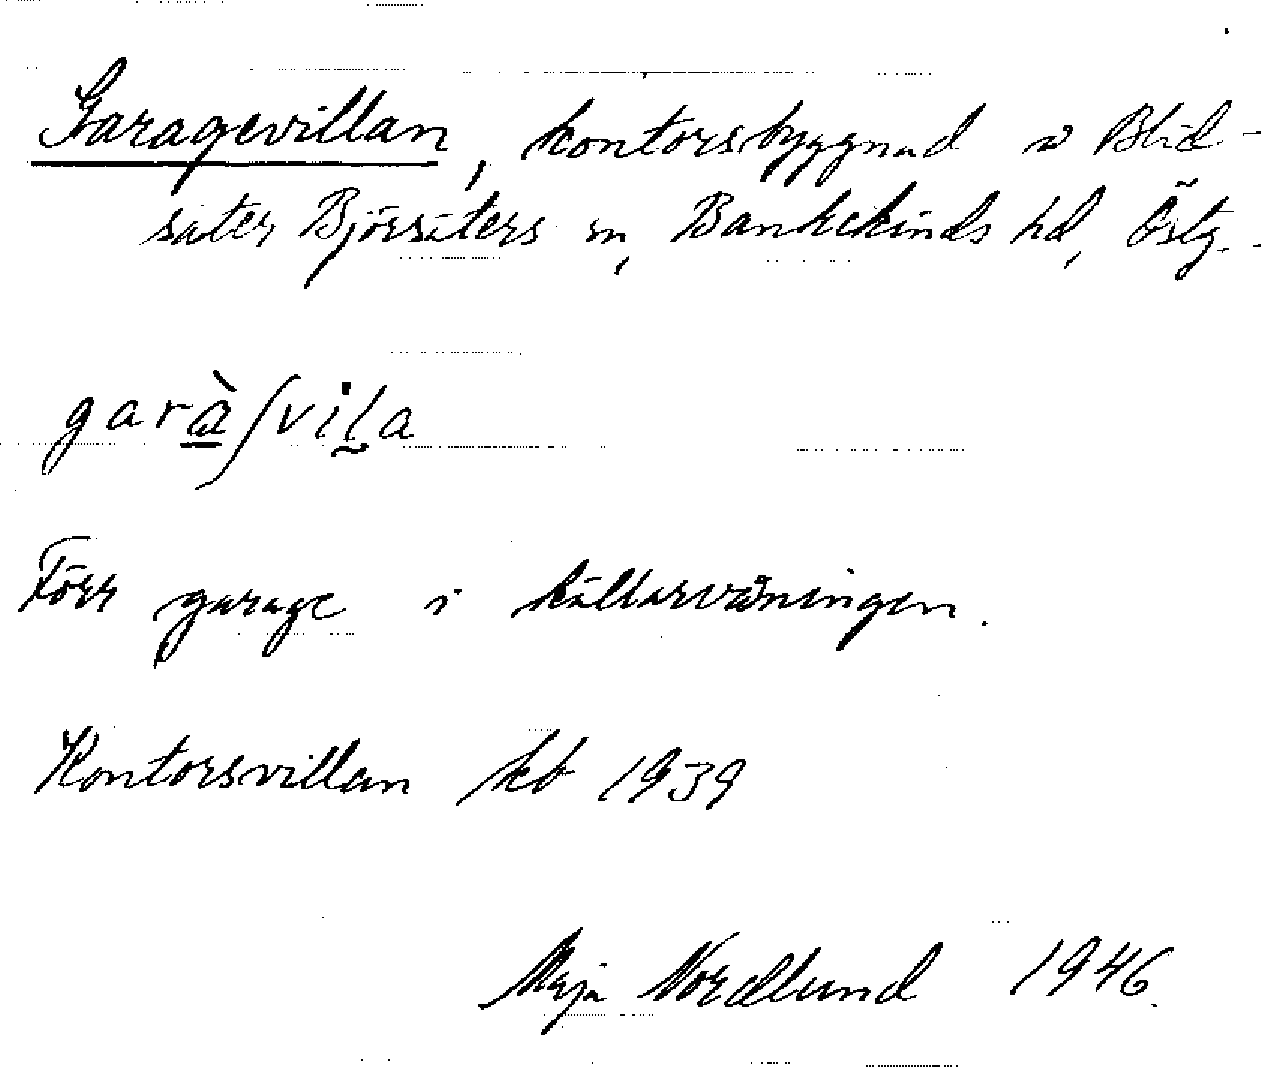 Garagevillan, kontorsbyggnad i Blid-
säter Björsäters sn, Bankekinds hd, Östg.
garàʃvila
Förr garage i källarvåningen.
Kontorsvillan kb 1939
Maja Nordlund 1946.